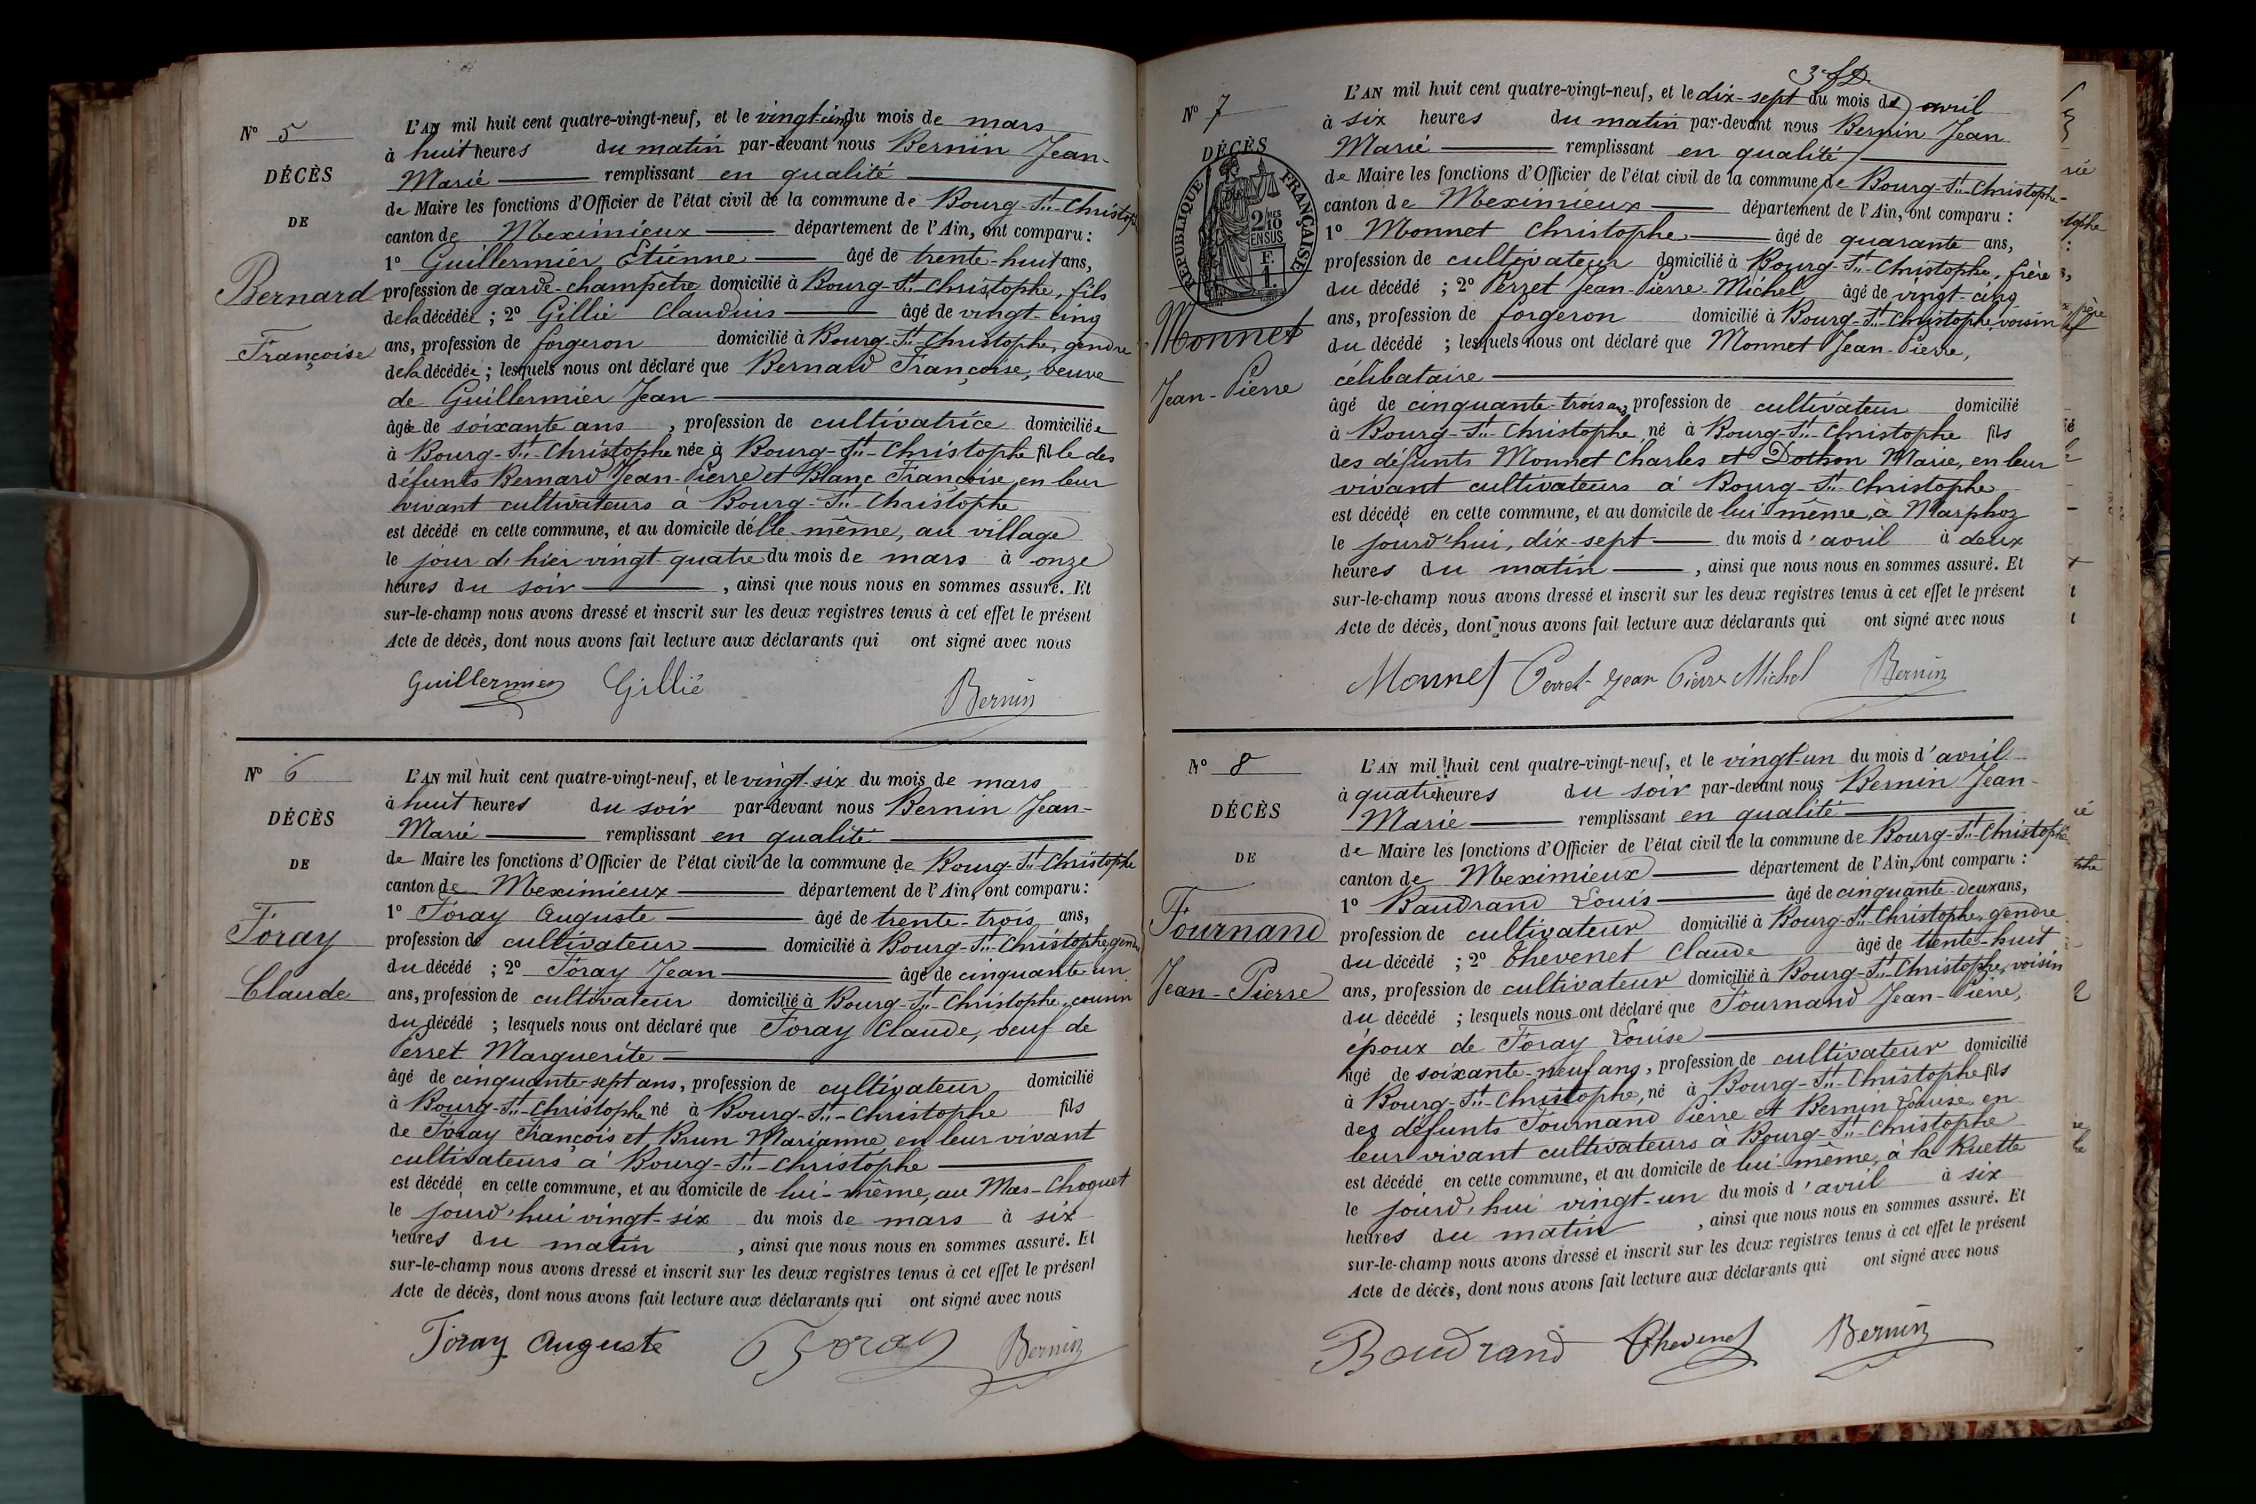 N° 5
DÉCÈS
DE
Bernard
Françoise
L'AN mil huit cent quatre-vingt-neuf, et le vingt-cinq du mois de mars
à huit heures du matin par-devant nous Bernin Jean-
Marie remplissant en qualité
de Maire les fonctions d'Officier de l'état civil de la commune de Bourg-St-Christophe
canton de Meximieux département de l'Ain, ont comparu :
1° Guillermier Etienne âgé de trente-huit ans,
profession de garde-champêtre domicilié à Bourg-St-Christophe, fils
de la décédée ; 2° Gillié Claudius âgé de vingt-cinq
ans, profession de forgeron domicilié à Bourg-St-Christophe, gendre
de la décédée ; lesquels nous ont déclaré que Bernard Françoise, veuve
de Guillermier Jean
âgée de soixante ans , profession de cultivatrice domiciliée
à Bourg-St-Christophe née à Bourg-St-Christophe fille des
défunts Bernard Jean-Pierre et Blanc Françoise, en leur
vivant cultivateurs à Bourg-St-Christophe
est décédé en cette commune, et au domicile d'elle-même, au village
le jour d'hier vingt-quatre du mois de mars à onze
heures du soir , ainsi que nous nous en sommes assuré. Et
sur-le-champ nous avons dressé et inscrit sur les deux registres tenus à cet effet le présent
Acte de décès, dont nous avons fait lecture aux déclarants qui ont signé avec nous
Guillermier Gillié Bernin
N° 6
DÉCÈS
DE
Foray
Claude
L'AN mil huit cent quatre-vingt-neuf, et le vingt-six du mois de mars
à huit heures du soir par-devant nous Bernin Jean-
Marie remplissant en qualité
de Maire les fonctions d'Officier de l'état civil de la commune de Bourg-St-Christophe
canton de Meximieux département de l'Ain, ont comparu :
1° Foray Auguste âgé de trente-trois ans,
profession de cultivateur domicilié à Bourg-St-Christophe, gendre
du décédé ; 2° Foray Jean âgé de cinquante-un
ans, profession de cultivateur domicilié à Bourg-St-Christophe, cousin
du décédé ; lesquels nous ont déclaré que Foray Claude, veuf de
Perret Marguerite
âgé de cinquante-sept ans, profession de cultivateur domicilié
à Bourg-St-Christophe né à Bourg-St-Christophe fils
de Foray François et Brun Marianne en leur vivant
cultivateurs à Bourg-St-Christophe
est décédé en cette commune, et au domicile de lui-même, au Mas-Choquet
le jourd'hui vingt-six du mois de mars à six
heures du matin , ainsi que nous nous en sommes assuré. Et
sur-le-champ nous avons dressé et inscrit sur les deux registres tenus à cet effet le présent
Acte de décès, dont nous avons fait lecture aux déclarants qui ont signé avec nous
Foray Auguste Foray Bernin
N° 7
DÉCÈS
RÉPUBLIQUE FRANÇAISE
2/10 EN SUS
F. 1.
Monnet
Jean-Pierre
L'AN mil huit cent quatre-vingt-neuf, et le dix-sept du mois d'avril
à six heures du matin par-devant nous Bernin Jean
Marie remplissant en qualité
de Maire les fonctions d'Officier de l'état civil de la commune de Bourg-St-Christophe
canton de Meximieux département de l'Ain, ont comparu :
1° Monnet Christophe âgé de quarante ans,
profession de cultivateur domicilié à Bourg-St-Christophe, frère
du décédé ; 2° Perret Jean-Pierre-Michel âgé de vingt-cinq
ans, profession de forgeron domicilié à Bourg-St-Christophe, voisin
du décédé ; lesquels nous ont déclaré que Monnet Jean-Pierre,
célibataire
âgé de cinquante-trois ans, profession de cultivateur domicilié
à Bourg-St-Christophe, né à Bourg-St-Christophe fils
des défunts Monnet Charles et Dothon Marie, en leur
vivant cultivateurs à Bourg-St-Christophe
est décédé en cette commune, et au domicile de lui-même, à Marphoz
le jourd'hui, dix-sept du mois d'avril à deux
heures du matin , ainsi que nous nous en sommes assuré. Et
sur-le-champ nous avons dressé et inscrit sur les deux registres tenus à cet effet le présent
Acte de décès, dont nous avons fait lecture aux déclarants qui ont signé avec nous
Monnet Perret Jean Pierre Michel Bernin
N° 8
DÉCÈS
DE
Tournand
Jean-Pierre
L'AN mil huit cent quatre-vingt-neuf, et le vingt-un du mois d'avril
à quatre heures du soir par-devant nous Bernin Jean-
Marie remplissant en qualité
de Maire les fonctions d'Officier de l'état civil de la commune de Bourg-St-Christophe
canton de Meximieux département de l'Ain, ont comparu :
1° Baudrand Louis âgé de cinquante-deux ans,
profession de cultivateur domicilié à Bourg-St-Christophe, gendre
du décédé ; 2° Thevenet Claude âgé de trente-huit
ans, profession de cultivateur domicilié à Bourg-St-Christophe, voisin
du décédé ; lesquels nous ont déclaré que Tournand Jean-Pierre,
époux de Foray Louise
âgé de soixante-neuf ans, profession de cultivateur domicilié
à Bourg-St-Christophe, né à Bourg-St-Christophe fils
des défunts Tournand Pierre et Bernin Louise, en
leur vivant cultivateurs à Bourg-St-Christophe
est décédé en cette commune, et au domicile de lui-même, à la Ruette
le jourd'hui vingt-un du mois d'avril à six
heures du matin , ainsi que nous nous en sommes assuré. Et
sur-le-champ nous avons dressé et inscrit sur les deux registres tenus à cet effet le présent
Acte de décès, dont nous avons fait lecture aux déclarants qui ont signé avec nous
Baudrand Thevenet Bernin